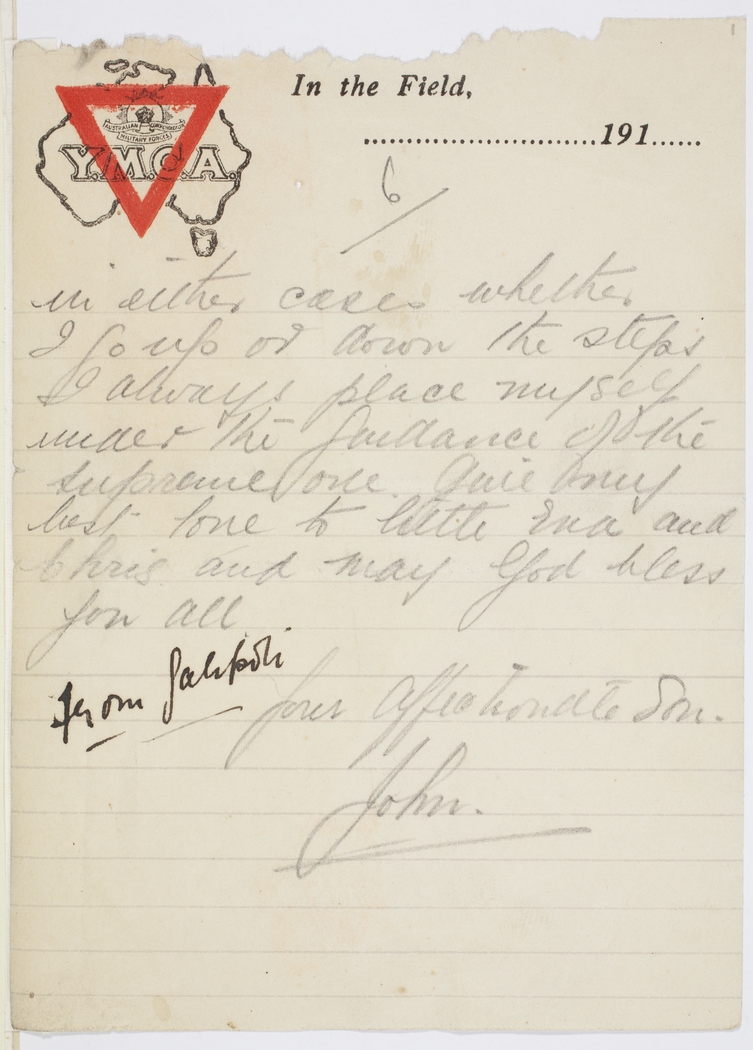 In the Field,
.............................191......
AUSTRALIAN COMMONWEALTH
MILITARY FORCES
Y.M.C.A.
6
in either cases whether
I go up or down the steps
I always place myself
under the guidance of the
supreme one. Give my
best love to little Eva and
Chris and may God bless
you all
from Gallipoli
your affectionate Son.
John.